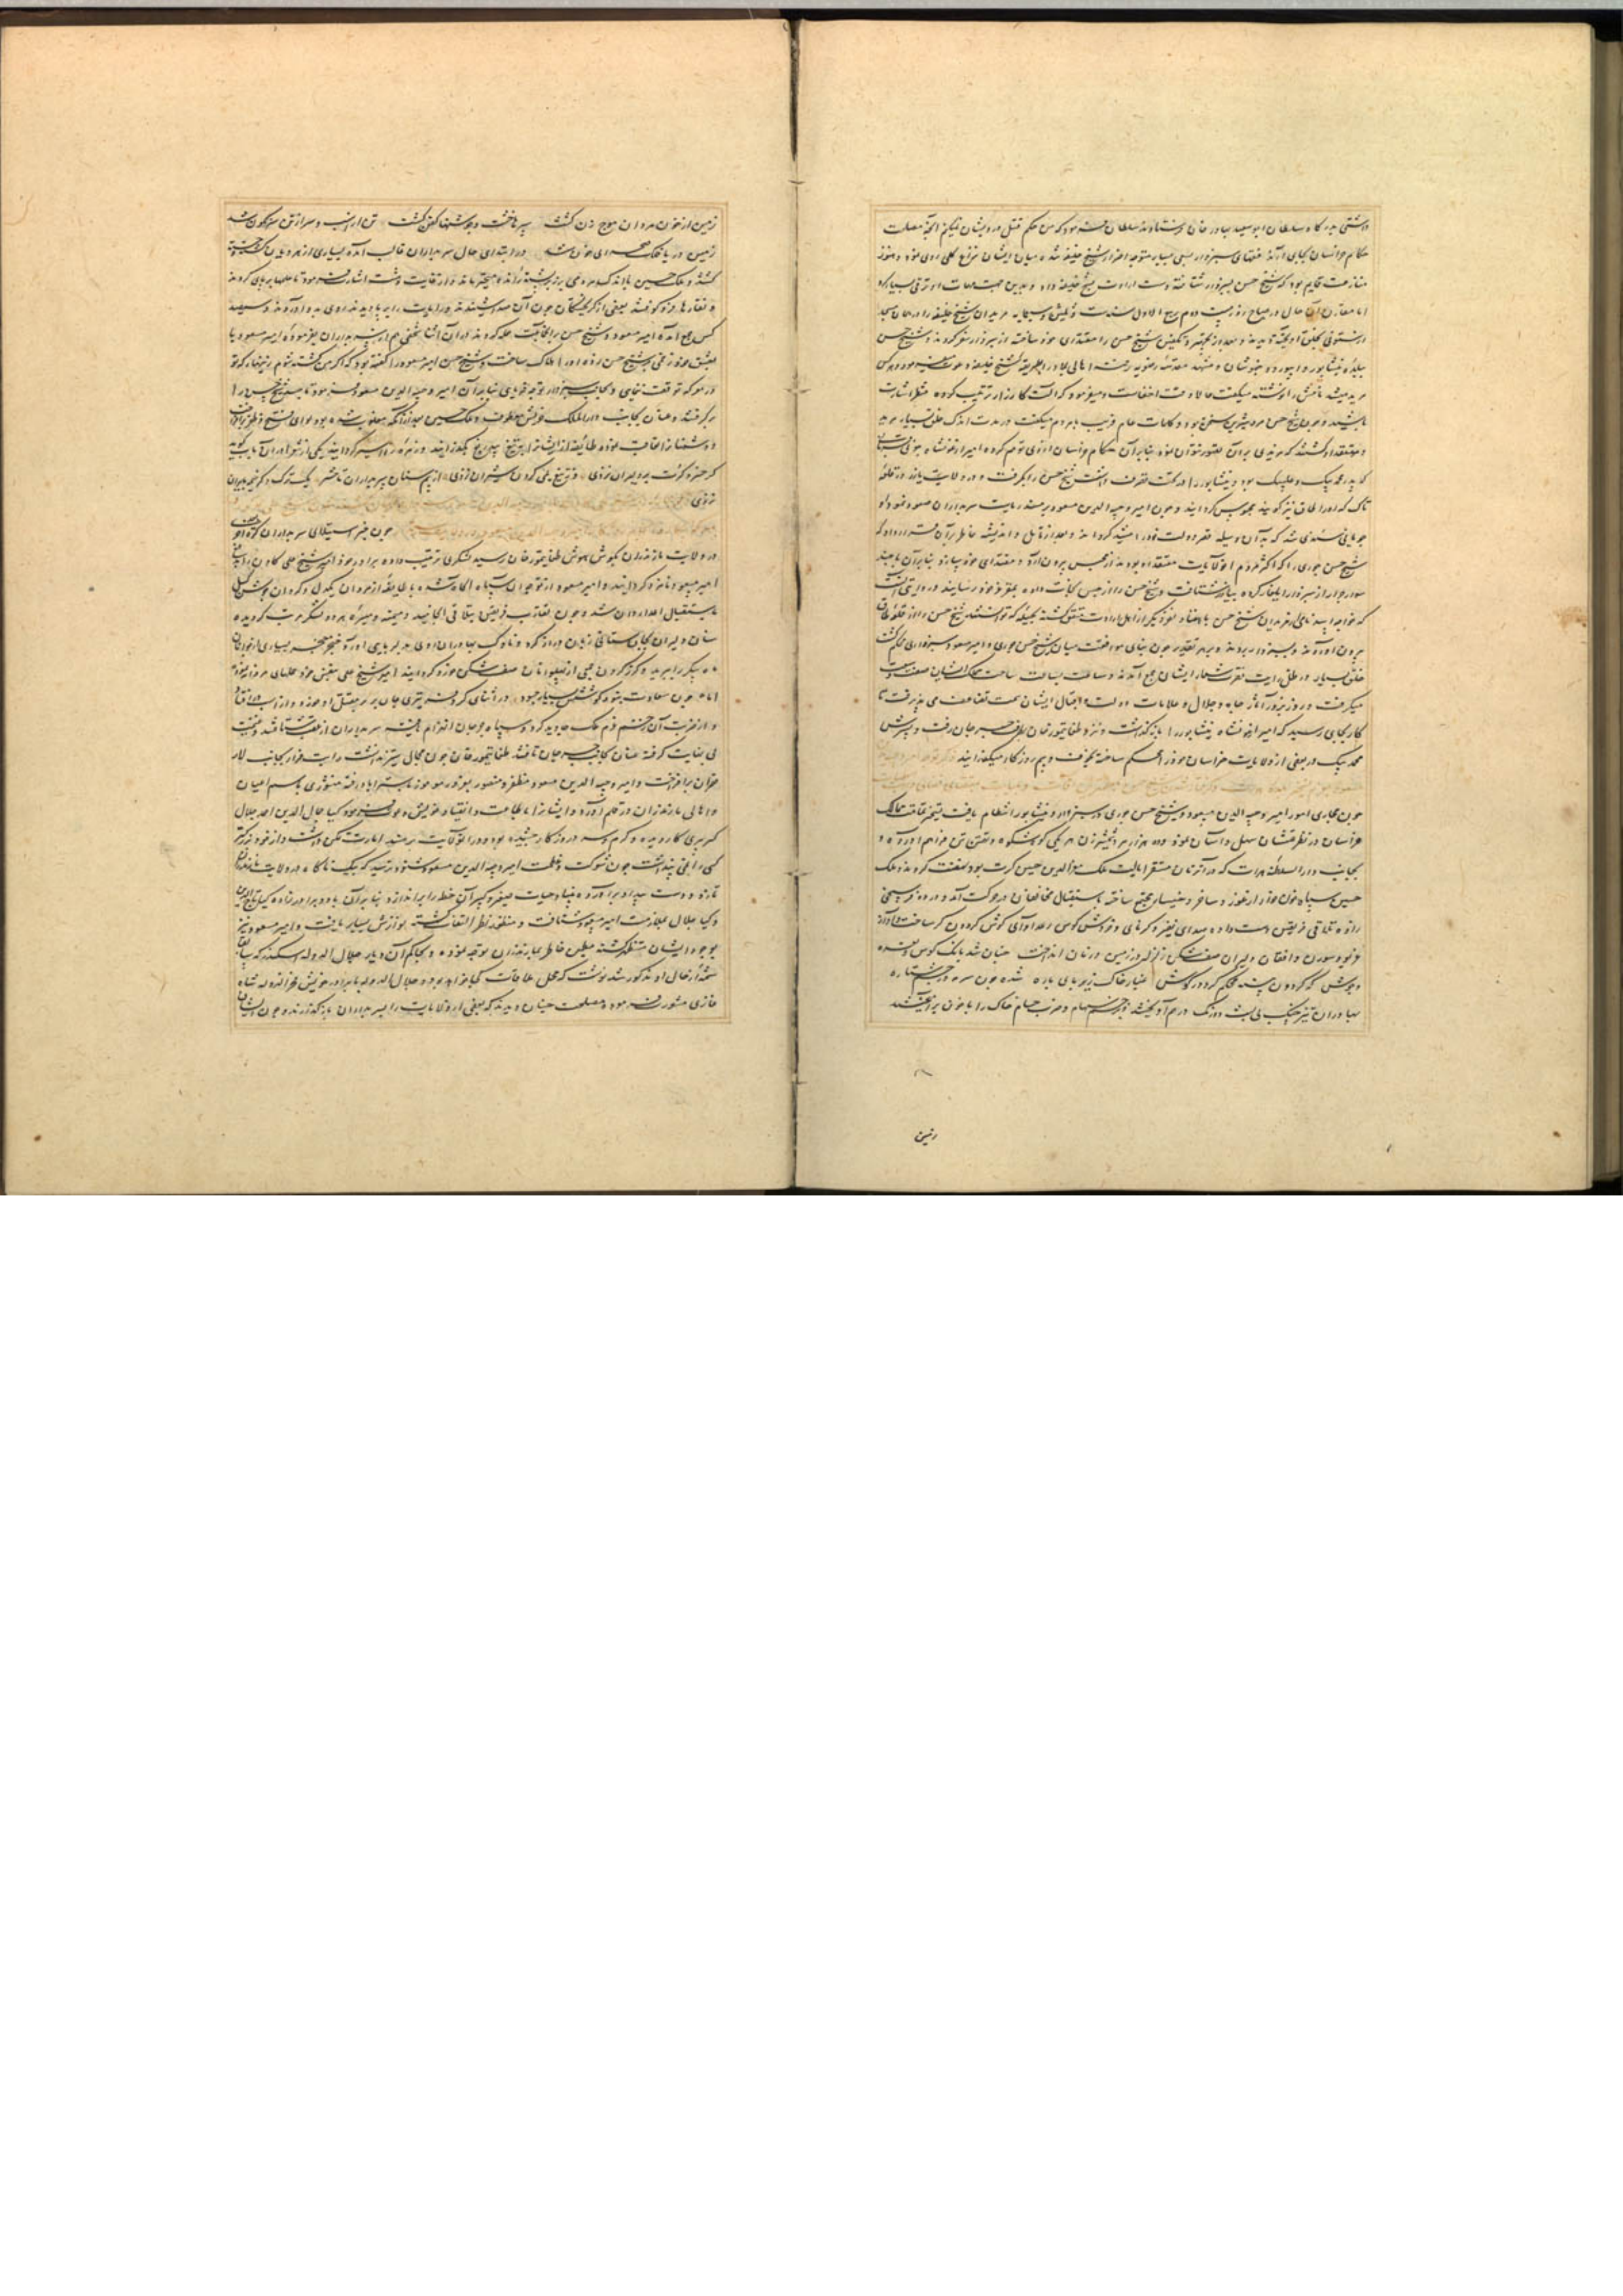 داشتی بدرگاه سلطان ابوسعید بهادر خان فرستادند سلطان فرمود که من حکم قتل درویشان نمیکنم آنچه مصلحت
حکام خراسان بجای آرند فقهای سبزوار سعی بسیار متوجه اضرار شیخ خلیفه شده میان ایشان نزاع کلی روی نمود و هنوز
منازعت قایم بود که شیخ حسن بسبزوار شتافته دست ارادت بشیخ خلیفه داد و بدین جهت مهمات او ترقی بسیار کرد
اما مقارن آن حال در صباح روز بیست دوم ربیع الاول سنه شیخ خلیفه را در همان مسجد
از ستونی بحلق آویخته دیدند و بعد از تجهیز و تکفین شیخ حسن را مقتدای خود ساخته از سبزوار سفر کردند و شیخ حسن
ببلده نیشابور و ابیورد و خبوشان و مشهد مقدسه رضویه رفته اهالی بلاد را بطریقه شیخ خلیفه دعوت مینمود و هر کس
مرید میشد نامش را نوشته میگفت حالا وقت اخفاست و میفرمود که آلت کارزار ترتیب کرده منتظر اشارت
باشید و چون شیخ حسن مرد شیرین سخن بود و کلمات عام فریب با مردم میگفت در مدت اندک خلق بسیار مرید
و معتقد او گشتند که مزیدی بر آن تصور نتوان نمود بنابر آن حکام خراسان از وی توهم کرده امیر ارغونشاه جونی قربانی
که پدر محمد بیک و علی بیک بود و نیشابور را در تحت تصرف داشت شیخ حسن را بگرفت و در ولایت یازر در قلعه
تاک که او را طاق نیز گویند محبوس گردانید و چون امیر وجیه الدین مسعود بر مسند ریاست سربداران صعود نمود او
جویای سندی شد که بآن وسیله قصر دولت خود را مشید گرداند و بعد از تأمل و اندیشه خاطر بر آن قرار داد که
شیخ حسن جوری را که اکثر مردم آن ولایت معتقد او بودند از محبس بیرون آرد و مقتدای خود سازد بنابر آن با چند
سوار جرار از سبزوار ایلغار کرده بیازر شتافت و شیخ حسن را از حبس نجات داده بمقر عز خود رسانید و روایتی آنست
که خواجه اسد نامی از مریدان شیخ حسن با هفتاد نفر دیگر از اهل ارادت متفق گشته بحیله که توانستند شیخ حسن را از قلعه طاق
بیرون آوردند و بسبزوار بردند و بهر تقدیر چون بنای موافقت میان شیخ حسن جوری و امیر مسعود سبزواری محکم گشت
خلق بسیار در ظل رایت نصرت شعار ایشان جمع آمدند و ساعت بساعت ساحت مملکت ایشان صفت وسعت
میگرفت و روز بروز آثار جاه و جلال و علامات دولت و اقبال ایشان سمت تضاعف می پذیرفت تا
کار بجایی رسید که امیر ارغونشاه نیشابور را باز گذاشت و نزد طغاتیمور خان بطرف جرجان رفت و پسرش
محمد بیک در بعضی از ولایات خراسان خود را محکم ساخته بخوف و بیم روزگار میگذرانید
چون مجاری امور امیر وجیه الدین مسعود و شیخ حسن جوری در سبزوار و نیشابور انتظام یافت تسخیر تمامت ممالک
خراسان در نظر همتشان سهل و آسان نمود و ده هزار مرد شمشیرزن هر یکی کوه شکوه و تهمتن تن فراهم آورده و
بجانب دارالسلطنه هرات که در آن زمان مستقر ایالت ملک معزالدین حسین کرت بود نهضت کردند و ملک
حسین سپاه خون خوار از غور و ساخر و خیسار مجتمع ساخته باستقبال مخالفان در حرکت آمد و در دو فرسخی
زاوه تلاقی فریقین دست داده صدای نفیر و کرنای و خروش کوس و صدا و آوای گوش گردون کر ساخت
غریو سوران و افغان دلیران صف شکن زلزله در زمین و زمان انداخت چنان شد بانک کوس و نعره
و جوش که گردون پنبه محکم کرد در گوش غبار خاک زیر پای باره شده چون سرمه در چشم ستاره
بهادران تیز جنگ بی لبث و درنگ در هم آویختند و بزخم سهام و ضرب حسام خاک را با خون بر آمیختند
زمین
زمین از خون مردان موج زن گشت سپرها خشت و جوشنها کفن گشت
زمین دریا فلک صحرای خون شد در ابتدای حال سربداران غالب آمده بسیاری از هرویان کشته
گشتند و ملک حسین با اندک مردمی بر زبر پشته رانده متحیر ماند و از غایت دهشت اشارت فرمود تا علمها بر پای کردند
و نقاره فرو کوفتند بعضی از گریختگان چون آن صدا شنیدند و رایات را بر پا دیدند روی بدو آوردند و سیصد
کس جمع آمده امیر مسعود و شیخ حسن بر آن جماعت حمله کردند در آن اثنا شخصی هم از سربداران بفرموده امیر مسعود یا
بعشق خود زخمی بر شیخ حسن زده او را هلاک ساخت و شیخ حسن امیر مسعود را گفته بود که اگر من کشته شوم زینهار که تو
در معرکه توقف ننمای و بجانب سبزوار توجه فرمای بنابر آن امیر وجیه الدین مسعود فرمود تا جسد شیخ حسن را
برگرفتند و عنان بجانب دارالملک خویش معطوف و ملک حسین بعد از آنکه مغلوب شده بود لوای فتح و ظفر برافراخت
و دشمنانرا تعاقب نموده طائفه از ایشانرا بر تیغ بیدریغ بگذرانید و زمره را اسیر گردانید یکی از شعرا در آن باب گوید
گر خسرو کرت بر دلیران نزدی وز تیغ یلی گردن شیران نزدی از بیم سنان سربداران تا حشر یک ترک دگر خیمه بایران
نزدی
چون خبر استیلای سربداران
در ولایت مازندران بگوش هوش طغاتیمور خان رسید لشکری ترتیب داده برادر خود امیر شیخ علی کاون را بجنگ
امیر مسعود نامزد گردانید و امیر مسعود از توجه آن سپاه آگاه شده با طایفه از مردان یکدل و گردان
باستقبال اعدا روان شد و چون تقارب فریقین بتلاقی انجامید و میمنه و میسره هر دو لشکر مرتب گردیده
سنان دلیران بجان ستانی زبان دراز کرد و ناوک بهادران روی بدلربایی آورد
پیکر را برید و گرز گردن
اما چون سعادت نبود کوشش بسیار چه سود در اثنای کر و فر تیری جان بر بر مقتل او خورد و از اسب در افتاد
و از ضربت آن زخم ملک جاوید کرد و سپاه جرجان انهزام یافتند سربداران از عقب شتافتند و غنیمت
بی نهایت گرفته عنان بجانب جرجان تافتند طغاتیمور خان چون مجال ستیز نداشت رایت فرار بجانب لار
قصران برافراخت و امیر وجیه الدین مسعود مظفر و منصور باستراباد رفته منشوری باسم اعیان
و اهالی مازندران در قلم آورد و ایشانرا باطاعت و انقیاد خویش دعوت فرمود کیا جمال الدین احمد جلال
که پیری کار دیده و گرم و سرد روزگار چشیده بود و در آن ولایت بر مسند امارت تمکن داشت و از خود بزرگتر
کسی را نمی پنداشت چون شوکت و عظمت امیر وجیه الدین مسعود شنود ترسید که یک ناگاه در ولایت مازندران
تازد و دست بیداد برآورده بنیاد حیات صغیر و کبیر آن خطه را براندازد بنابر آن با دو برادرزاده کیا تاج الدین
و کیا جلال بملازمت امیر مسعود شتافت و منظور نظر التفات گشته بنوازش بسیار یافت و امیر مسعود نیز
بوجود ایشان مستظهر گشته مطمئن خاطر بمازندران توجه نموده و بحاکم آن دیار جلال الدوله اسکندر که سابقا
شمه از حال او مذکور شد نوشت که محل ملاقات کجا خواهد بود و جلال الدوله با برادر خویش فخر الدوله شاه
غازی مشورت فرمود و مصلحت چنان دیدند که بعضی از ولایات را بسربداران باز گذارند و چون ایشان